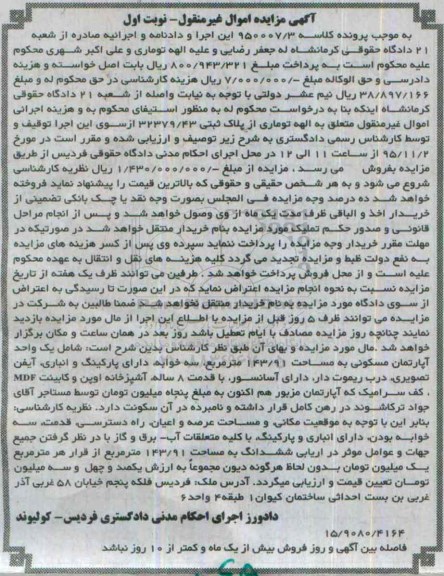 آگهی مزایده اموال غیرمنقول- نوبت اول
به موجب پرونده کلاسه ۹۵۰۰۰۷/۳ این اجرا و دادنامه و اجرائیه صادره از شعبه
۲۱ دادگاه حقوقی کرمانشاه له جعفر رضایی و علیه الهه توماری و علی اکبر شهری محکوم
علیه محکوم است به پرداخت مبلغ ۸۰۰/۹۴۳/۳۲۱ ریال بابت اصل خواسته و هزینه
دادرسی و حق الوکاله مبلغ -/۷/۰۰۰/۰۰۰ ریال هزینه کارشناسی در حق محکوم له و مبلغ
۳۸/۸۹۷/۱۶۶ ریال نیم عشر دولتی با توجه به نیابت واصله از شعبه ۲۱ دادگاه حقوقی
کرمانشاه اینکه بنا به درخواست محکوم له به منظور استیفای محکوم به و هزینه اجرائی
اموال غیرمنقول متعلق به الهه توماری از پلاک ثبتی ۳۲۳۷۹/۴۳ ازسوی این اجرا توقیف و
توسط کارشناس رسمی دادگستری به شرح زیر توصیف و ارزیابی شده و مقرر است در مورخ
۹۵/۱۱/۲ از ساعت ۱۱ الی ۱۲ در محل اجرای احکام مدنی دادگاه حقوقی فردیس از طریق
مزایده بفروش می رسد . مزایده از مبلغ -/۱/۴۳۰/۰۰۰/۰۰۰ ریال نظریه کارشناسی
شروع می شود و به هر شخص حقیقی و حقوقی که بالاترین قیمت را پیشنهاد نماید فروخته
خواهد شد ده درصد وجه مزایده فی المجلس بصورت وجه نقد یا چک بانکی تضمینی از
خریدار اخذ و الباقی ظرف مدت یک ماه از وی وصول خواهد شد و پس از انجام مراحل
قانونی و صدور حکم تملیک مورد مزایده بنام خریدار منتقل خواهد شد در صورتیکه در
مهلت مقرر خریدار وجه مزایده را پرداخت ننماید سپرده وی پس از کسر هزینه های مزایده
به نفع دولت ظبط و مزایده تجدید می گردد کلیه هزینه های نقل و انتقال به عهده محکوم
علیه است و از محل فروش پرداخت خواهد شد . طرفین می توانند ظرف یک هفته از تاریخ
مزایده نسبت به نحوه انجام مزایده اعتراض نماید که در این صورت تا رسیدگی به اعتراض
از سوی دادگاه مورد مزایده به نام خریدار منتقل نخواهد شد ضمنا طالبین به شرکت در
مزایده می توانند ظرف ۵ روز قبل از مزایده با اطلاع این اجرا از مال مورد مزایده بازدید
نمایند چنانچه روز مزایده مصادف با ایام تعطیل باشد روز بعد در همان ساعت و مکان برگزار
خواهد شد .مال مورد مزایده و بهای آن طبق نظر کارشناس بدین شرح است: شامل یک واحد
آپارتمان مسکونی به مساحت ۱۴۳/۹۱ مترمربع، سه خوابه، دارای پارکینگ و انباری، آیفن
تصویری، درب ریموت دار، دارای آسانسور، با قدمت ۸ ساله، آشپزخانه اوپن و کابینت MDF
، کف سرامیک که آپارتمان مزبور هم اکنون به مبلغ پنجاه میلیون تومان توسط مستاجر آقای
جواد ترکاشوند در رهن کامل قرار داشته و نامبرده در آن سکونت دارد. نظریه کارشناسی:
بنابر این با توجه به موقعیت مکانی، و مساحت عرصه و اعیان، راه دسترسی، قدمت، سه
خوابه بودن، دارای انباری و پارکینگ، با کلیه متعلقات آب- برق و گاز با در نظر گرفتن جمیع
جهات و عوامل موثر در اریابی ششدانگ به مساحت ۱۴۳/۹۱ مترمربع از قرار هر مترمربع
یک میلیون تومان بدون لحاظ هرگونه دیون مجموعاً به ارزش یکصد و چهل و سه میلیون
تومان تعیین قیمت و ارزیابی میگردد. آدرس ملک: فردیس فلکه پنجم خیابان ۵۸ غربی آذر
غربی بن بست احداثی ساختمان کیوان۱ طبقه۴ واحد۶
دادورز اجرای احکام مدنی دادگستری فردیس- کولیوند
۱۵/۹۰۸۰/۴۱۶۴
فاصله بین آگهی و روز فروش بیش از یک ماه و کمتر از ۱۰ روز نباشد